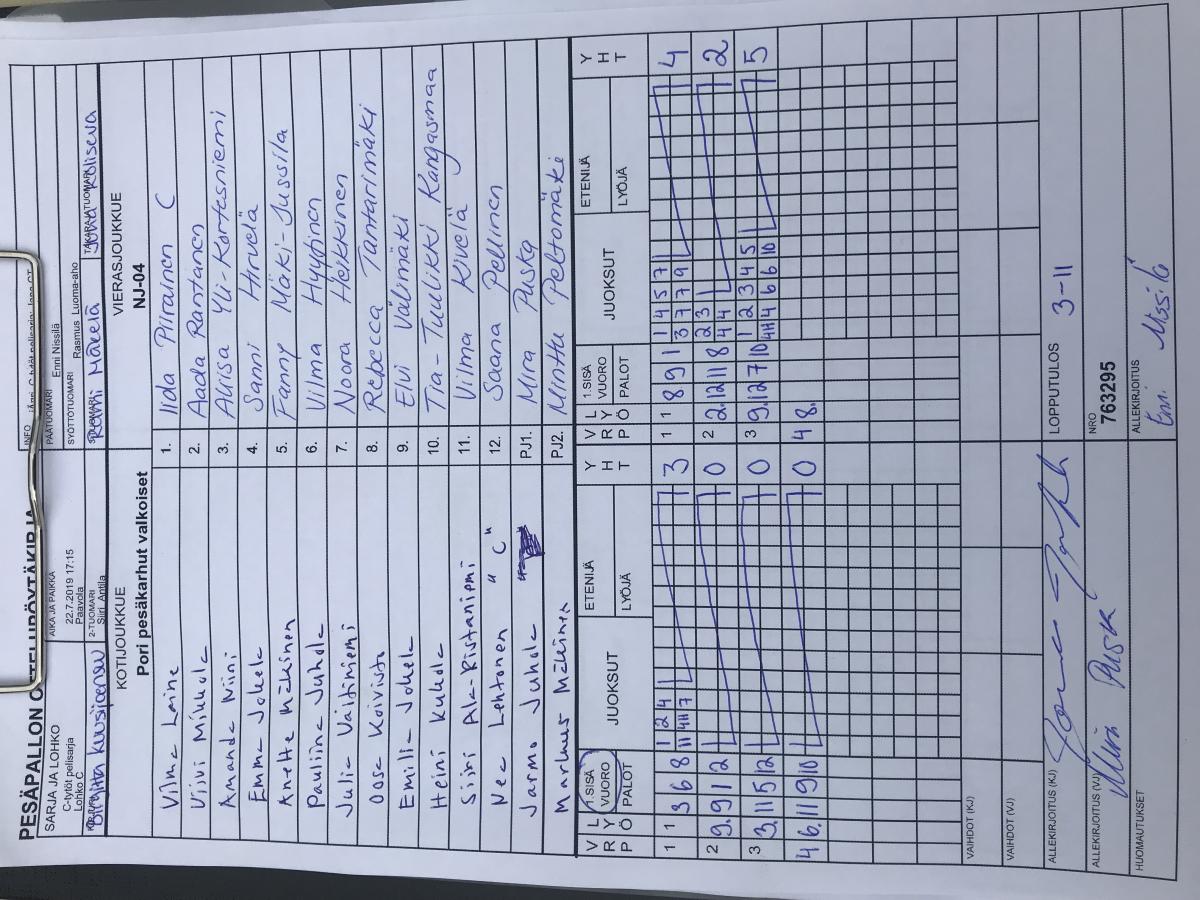 PESÄPALLON OTTELUPÖYTÄKIRJA
SARJA JA LOHKO
C-tytöt pelisarja
Lohko C
AIKA JA PAIKKA
22.7.2019 17:15
Paavola
INFO
PÄÄTUOMARI
Enni Nissilä
SYÖTTÖTUOMARI
Rasmus Luoma-aho
2-TUOMARI
Siiri Antila
Rami Mäkelä
TAKARAJATUOMARI
KOTIJOUKKUE
Pori pesäkarhut valkoiset
VIERASJOUKKUE
NJ-04
Vilma Laine 1. Iida Piirainen C
Viivi Mikkola 2. Aada Rantanen
Amanda Niini 3. Auisa Yli-Kortesniemi
Emma Jokela 4. Sanni Hirvelä
Anette Mäkinen 5. Fanny Mäki-Jussila
Pauliina Juhola 6. Vilma Hyypinen
Julia Vaitiniemi 7. Noora Heikkinen
Oosa Koivisto 8. Rebecca Tantarimäki
Emilia Jokela 9. Elvi Välimäki
Heini Kuhola 10. Tia-Tuulikki Kangasmaa
Siiri Ala-Ristaniemi 11. Vilma Kivelä
Nea Lehtonen "C" 12. Saana Pellinen
Jarmo Juhola PJ1. Mira Puska
Markus Mäkinen PJ2. Minttu Peltomäki
V R LYÖ P 1.SISÄ VUORO PALOT JUOKSUT ETENIJÄ LYÖJÄ YHT V R LYÖ P 1.SISÄ VUORO PALOT JUOKSUT ETENIJÄ LYÖJÄ YHT
1 1 3 6 8 1 2 4 3 1 1 8 9 1 1 4 5 7 4
11 4H 7 3 7 7 9
2 9. 9 1 2 0 2 2. 12 11 8 2 3 2
4 4
3 3. 11 5 12 0 3 9. 12 7 10 1 2 3 4 5 5
4H 4 6 6 10
4 6. 11 9 10 0 4 8.
VAIHDOT (KJ)
VAIHDOT (VJ)
ALLEKIRJOITUS (KJ)
LOPPUTULOS 3-11
ALLEKIRJOITUS (VJ) Mira Puska
NRO
763295
HUOMAUTUKSET
ALLEKIRJOITUS
Enni Nissilä